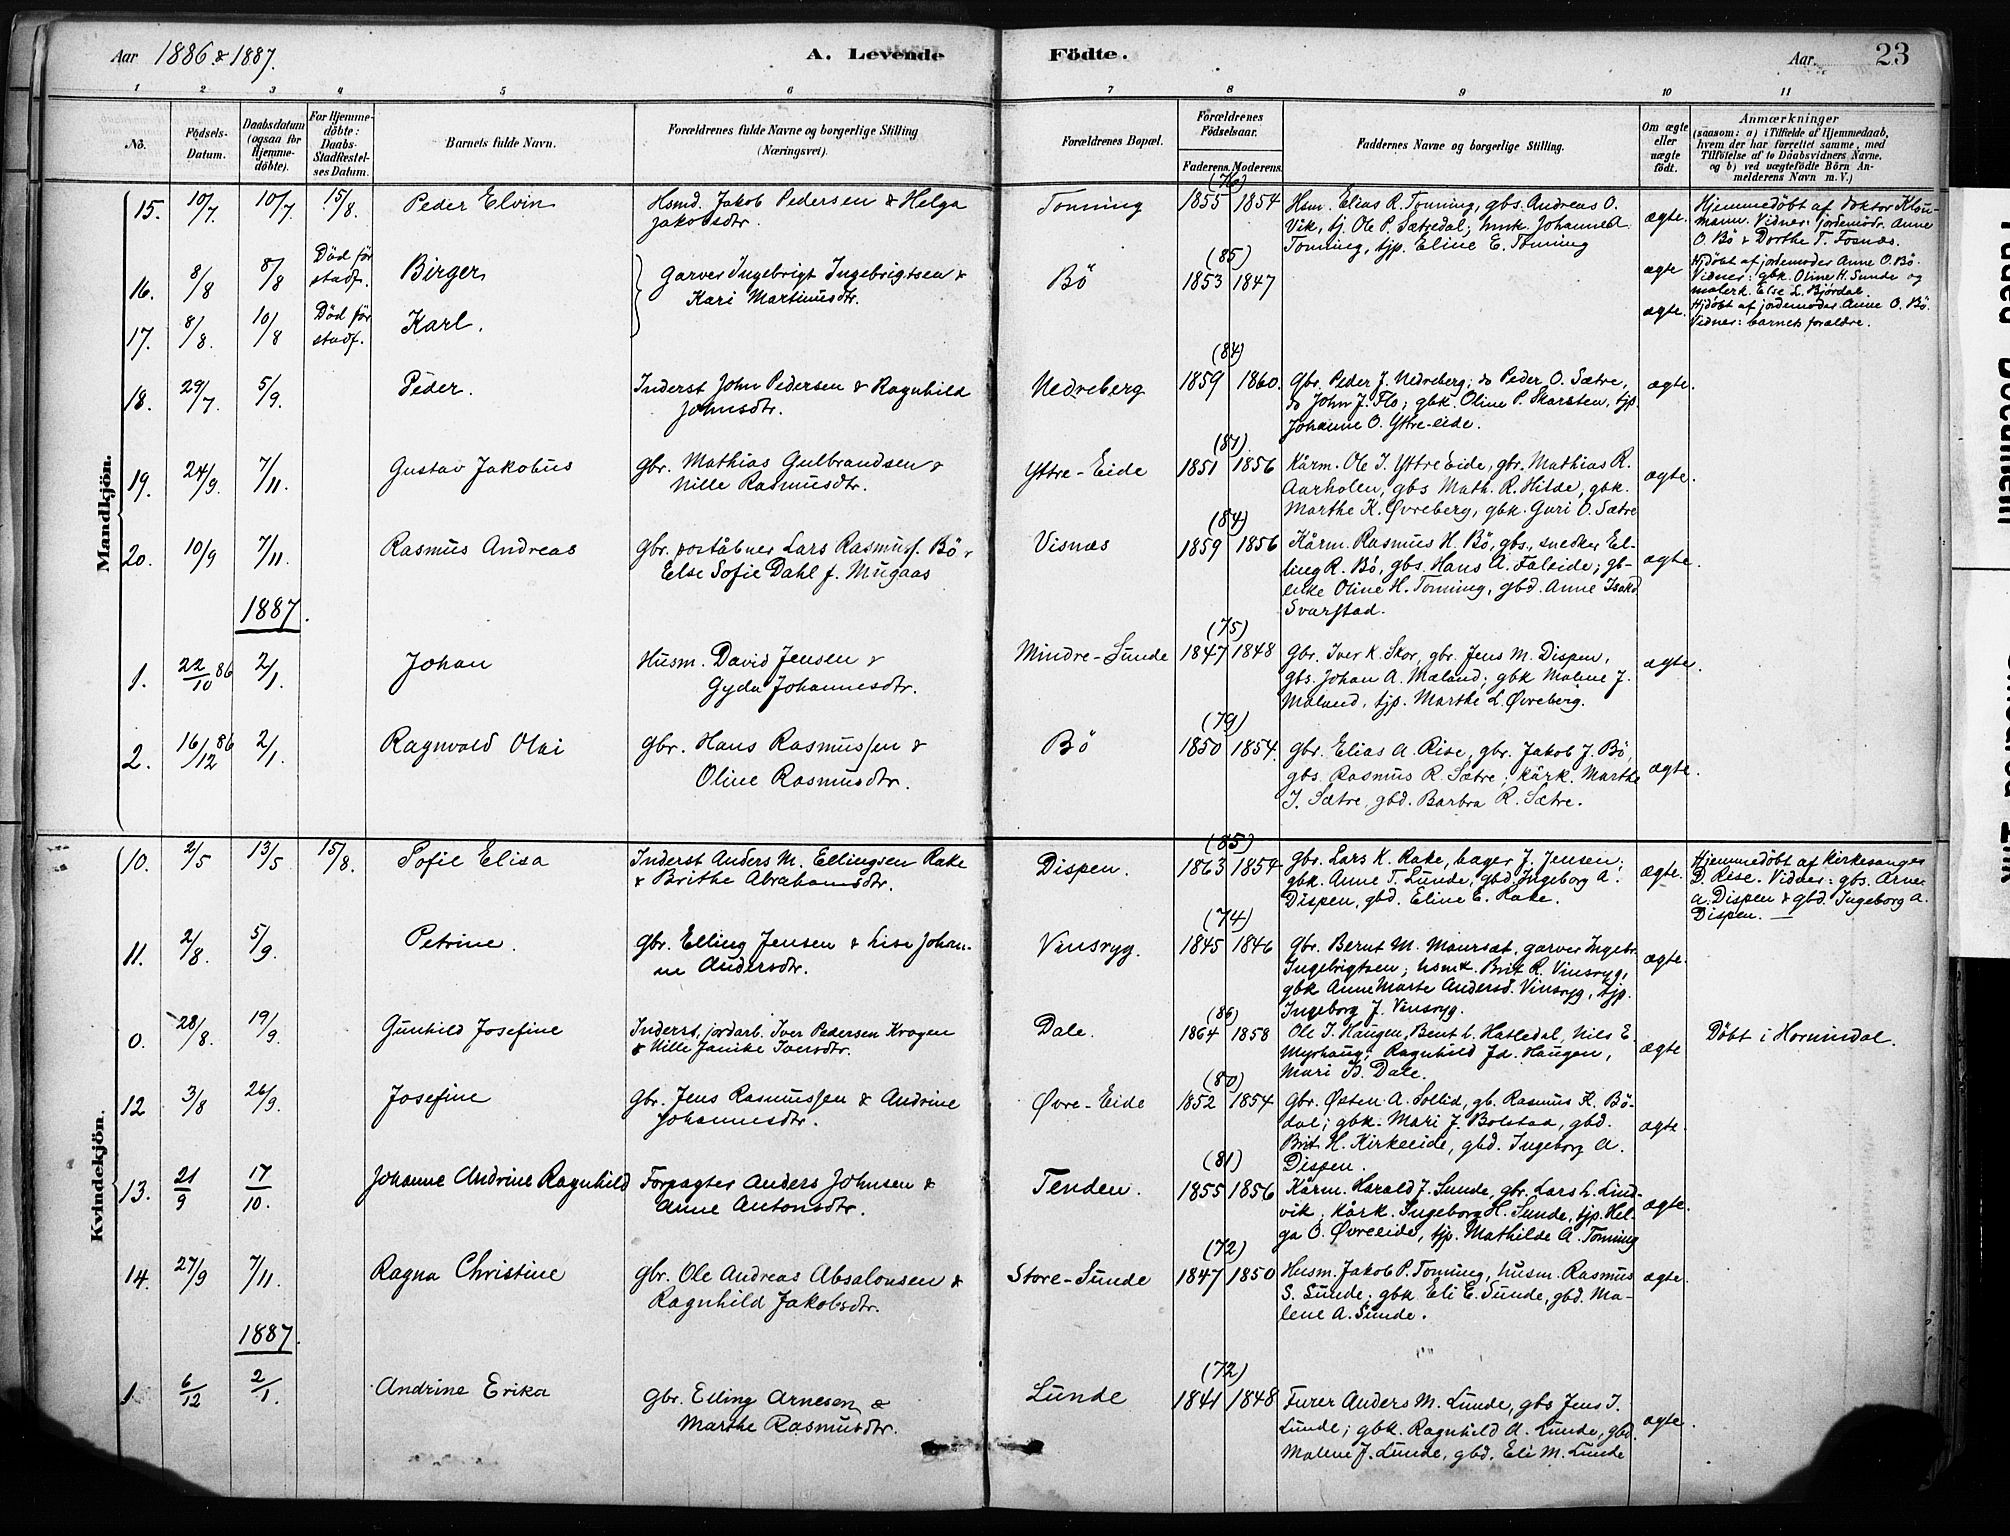 Aar 1886 & 1887.
A. Levende
Födte.
Aar.
23
1 2 3 4 5 6 7 8 9 10 11
No.
Födsels-
Datum.
Daabsdatum
(ogsaa for
Hjemme-
döbte).
For Hjemme-
döbte:
Daabs-
Stadfæstel-
ses Datum.
Barnets fulde Navn.
Forældrenes fulde Navne og borgerlige Stilling
(Næringsvei).
Forældrenes Bopæl.
Forældrenes
Födselsaar.
Faderens. Moderens.
Faddernes Navne og borgerlige Stilling.
Om ægte
eller
uægte
födt.
Anmærkninger
(saasom: a) i Tilfælde af Hjemmedaab,
hvem der har forrettet samme, med
Tilföielse af to Daabsvidners Navne,
og b) ved uægtefödte Börn An-
melderens Navn m. V.)
Mandkjön.
15. 10/7 10/7 15/8. Peder Elvin
Hsmd. Jakob Pedersen & Helga
Jakobsdtr.
Tonning
(76)
1855 1854
Hsm. Elias R. Tonning, gbs. Andreas O.
Vik, tj. Ole P. Sætredal; hmk. Johanne A.
Tonning, tjp. Eline E. Tonning
ægte.
Hjemmedöbt af doktor Klou-
mann. Vidner: jordemodr. Anne
O. Bö & Dorthe T. Fosnæs.
16. 8/8 8/8 Död før
stadf. Birger
Garver Ingebrigt Ingebrigtsen &
Kari Martinusdtr.
Bö
(85)
1853 1847
ægte
Hjdöbt af jordemoder Anne O. Bö.
Vidner: gbk. Oline H. Sunde og
malerk. Else L. Björdal.
17. 8/8. 10/8 Död før
stadf. Karl.
ægte.
Hjdöbt af jordemoder Anne O. Bö.
Vidner: barnets forældre.
18. 29/7. 5/9. Peder.
Inderst John Pedersen & Ragnhild
Johnsdtr.
Nedreberg
(84)
1859 1860.
Gbr. Peder J. Nedreberg; do Peder O. Sætre,
do John J. Flo; gbk. Oline P. Skarsten, tjp.
Johanne O. Yttre-eide.
ægte.
19. 24/9. 7/11. Gustav Jakobus
gbr. Mathias Gulbrandsen &
Nille Rasmusdtr.
Yttre-Eide
(81)
1851 1856
Kårm. Ole I. Yttre Eide, gbr. Mathias R.
Aarholen, gbs Math. R. Hilde, gbk.
Marthe K. Øvreberg, gbk. Guri O. Sætre
ægte.
20. 10/9 7/11. Rasmus Andreas
Gbr. poståbner Lars Rasmuss. Bö &
Else Sofie Dahl f. Mugaas
Visnæs
(84)
1859 1856
Kårm. Rasmus H. Bö, gbs., snedker El-
ling R. Bö, gbs. Hans A. Faleide; gb-
enke Oline H. Tonning, gbd. Anne Isakd
Svarstad.
ægte.
1887.
1. 22/10 86 2/1. Johan
Husm. David Jensen &
Gyda Johannesdtr.
Mindre-Sunde
(75)
1847 1848
Gbr. Iver K. Skor, gbr. Jens M. Dispen,
gbs. Johan A. Mæland; gbk Malene J.
Mæland, tjp. Marthe L. Øvreberg.
ægte.
2. 16/12 86 2/1. Ragnvald Olai
gbr. Hans Rasmussen &
Oline Rasmusdtr.
Bö
(79)
1850 1854.
gbr. Elias A. Rise, gbr. Jakob J. Bö,
gbs. Rasmus R. Sætre; kårk. Marthe
I. Sætre, gbd. Barbra R. Sætre.
ægte.
Kvindekjön.
10. 2/5 13/5 15/8. Sofie Elisa
Inderst Anders M. Ellingsen Rake
& Brithe Abrahamsdtr.
Dispen.
(85)
1863 1854
gbr. Lars K. Rake, bager J. Jensen;
gbk. Anne T. Lunde, gbd. Ingeborg A.
Dispen, gbd. Eline E. Rake.
ægte.
Hjemmedöbt af kirkesanger
D. Rise. Vidner: gbs. Arne
A. Dispen & gbd. Ingeborg A.
Dispen.
11. 2/8. 5/9. Petrine.
gbr. Elling Jensen & Lise Johan-
ne Andersdtr.
Vinsryg.
(74)
1845 1846
gbr. Bernt M. Maurset, garver Ingebr.
Ingebrigtsen; hsmk. Brit R. Vinsryg,
gbk Anne Marte Andersd. Vinsryg, tjp.
Ingeborg J. Vinsryg.
ægte.
0. 28/8. 19/9. Gunhild Josefine
Inderst, jordarb. Iver Pedersen Kragen
& Nille Janike Iversdtr.
Dale.
(86)
1864 1858
Ole I. Haugen, Bent L. Hatledal, Nils E.
Myrhaug; Ragnhild Jd. Haugen,
Mari B. Dale.
ægte
Döbt i Hornindal.
12 3/8 26/9. Josefine
gbr. Jens Rasmussen & Andrine
Johannesdtr.
Øvre-Eide
(80)
1852 1854
Gbr. Østen A. Sollid, gb. Rasmus K. Bö-
dal; gbk. Mari J. Bolstad, gbd.
Brit H. Kirkeeide, gbd. Ingeborg A.
Dispen.
ægte.
13. 21/9 17/10. Johanne Andrine Ragnhild
Forpagter Anders Johnsen &
Anne Antonsdtr.
Tenden.
(81)
1855 1856
Kårm. Harald J. Sunde, gbr. Lars L. Lind-
vik, kårk. Ingeborg H. Sunde, tjp. Hel-
ga O. Øvreeide, tjp. Mathilde A. Tonning
ægte.
14. 27/9 7/11. Ragna Christine
gbr. Ole Andreas Absalonsen &
Ragnhild Jakobsdtr.
Store-Sunde
(72)
1847 1850
Husm. Jakob P. Tonning, husm. Rasmus
S. Sunde; gbk Eli E. Sunde, gbd. Ma-
lene A. Sunde.
ægte.
1887.
1. 6/12 2/1. Andrine Erika
gbr. Elling Arnesen &
Marthe Rasmusdtr.
Lunde
(72)
1841 1848
Furer Anders M. Lunde, gbs Jens I.
Lunde; gbk. Ragnhild A. Lunde, gbd.
Malene J. Lunde, gbd. Eli M. Lunde
ægte.